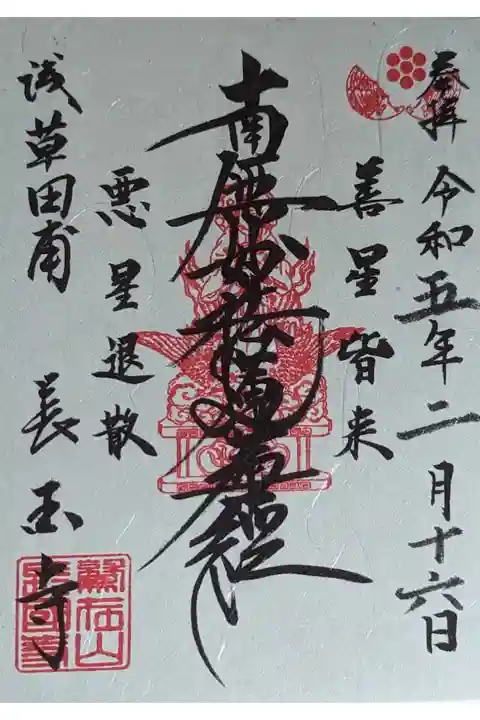 奉拝 令和五年二月十六日
善星皆来
南無妙法蓮華経
悪星退散
浅草田甫 長国寺
鷲在山
長国寺